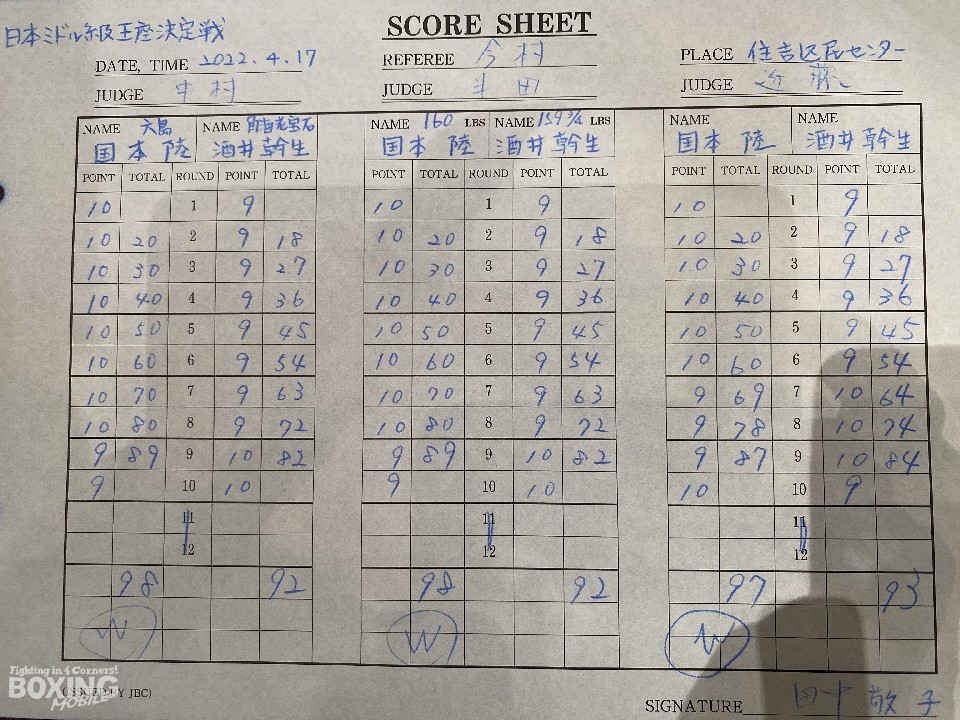 SCORE SHEET
日本ミドル級王座決定戦
DATE, TIME 2022.4.17
REFEREE 今村
PLACE 住吉区民センター
JUDGE 中村
JUDGE 半田
JUDGE 近藤
NAME 六島 NAME
NAME 160 LBS NAME 159 3/4 LBS
NAME NAME
国本 陸 酒井幹生 国本 陸 酒井幹生 国本 陸 酒井幹生
POINT TOTAL ROUND POINT TOTAL POINT TOTAL ROUND POINT TOTAL POINT TOTAL ROUND POINT TOTAL
10 1 9 10 1 9 10 1 9
10 20 2 9 18 10 20 2 9 18 10 20 2 9 18
10 30 3 9 27 10 30 3 9 27 10 30 3 9 27
10 40 4 9 36 10 40 4 9 36 10 40 4 9 36
10 50 5 9 45 10 50 5 9 45 10 50 5 9 45
10 60 6 9 54 10 60 6 9 54 10 60 6 9 54
10 70 7 9 63 10 70 7 9 63 9 69 7 10 64
10 80 8 9 72 10 80 8 9 72 9 78 8 10 74
9 89 9 10 82 9 89 9 10 82 9 87 9 10 84
9 10 10 9 10 10 10 10 9
11 11 11
12 12 12
98 92 98 92 97 93
W W W
(ISSUED BY JBC)
SIGNATURE 田中 敬子
Fighting in 4 Corners!
BOXING
MOBILE